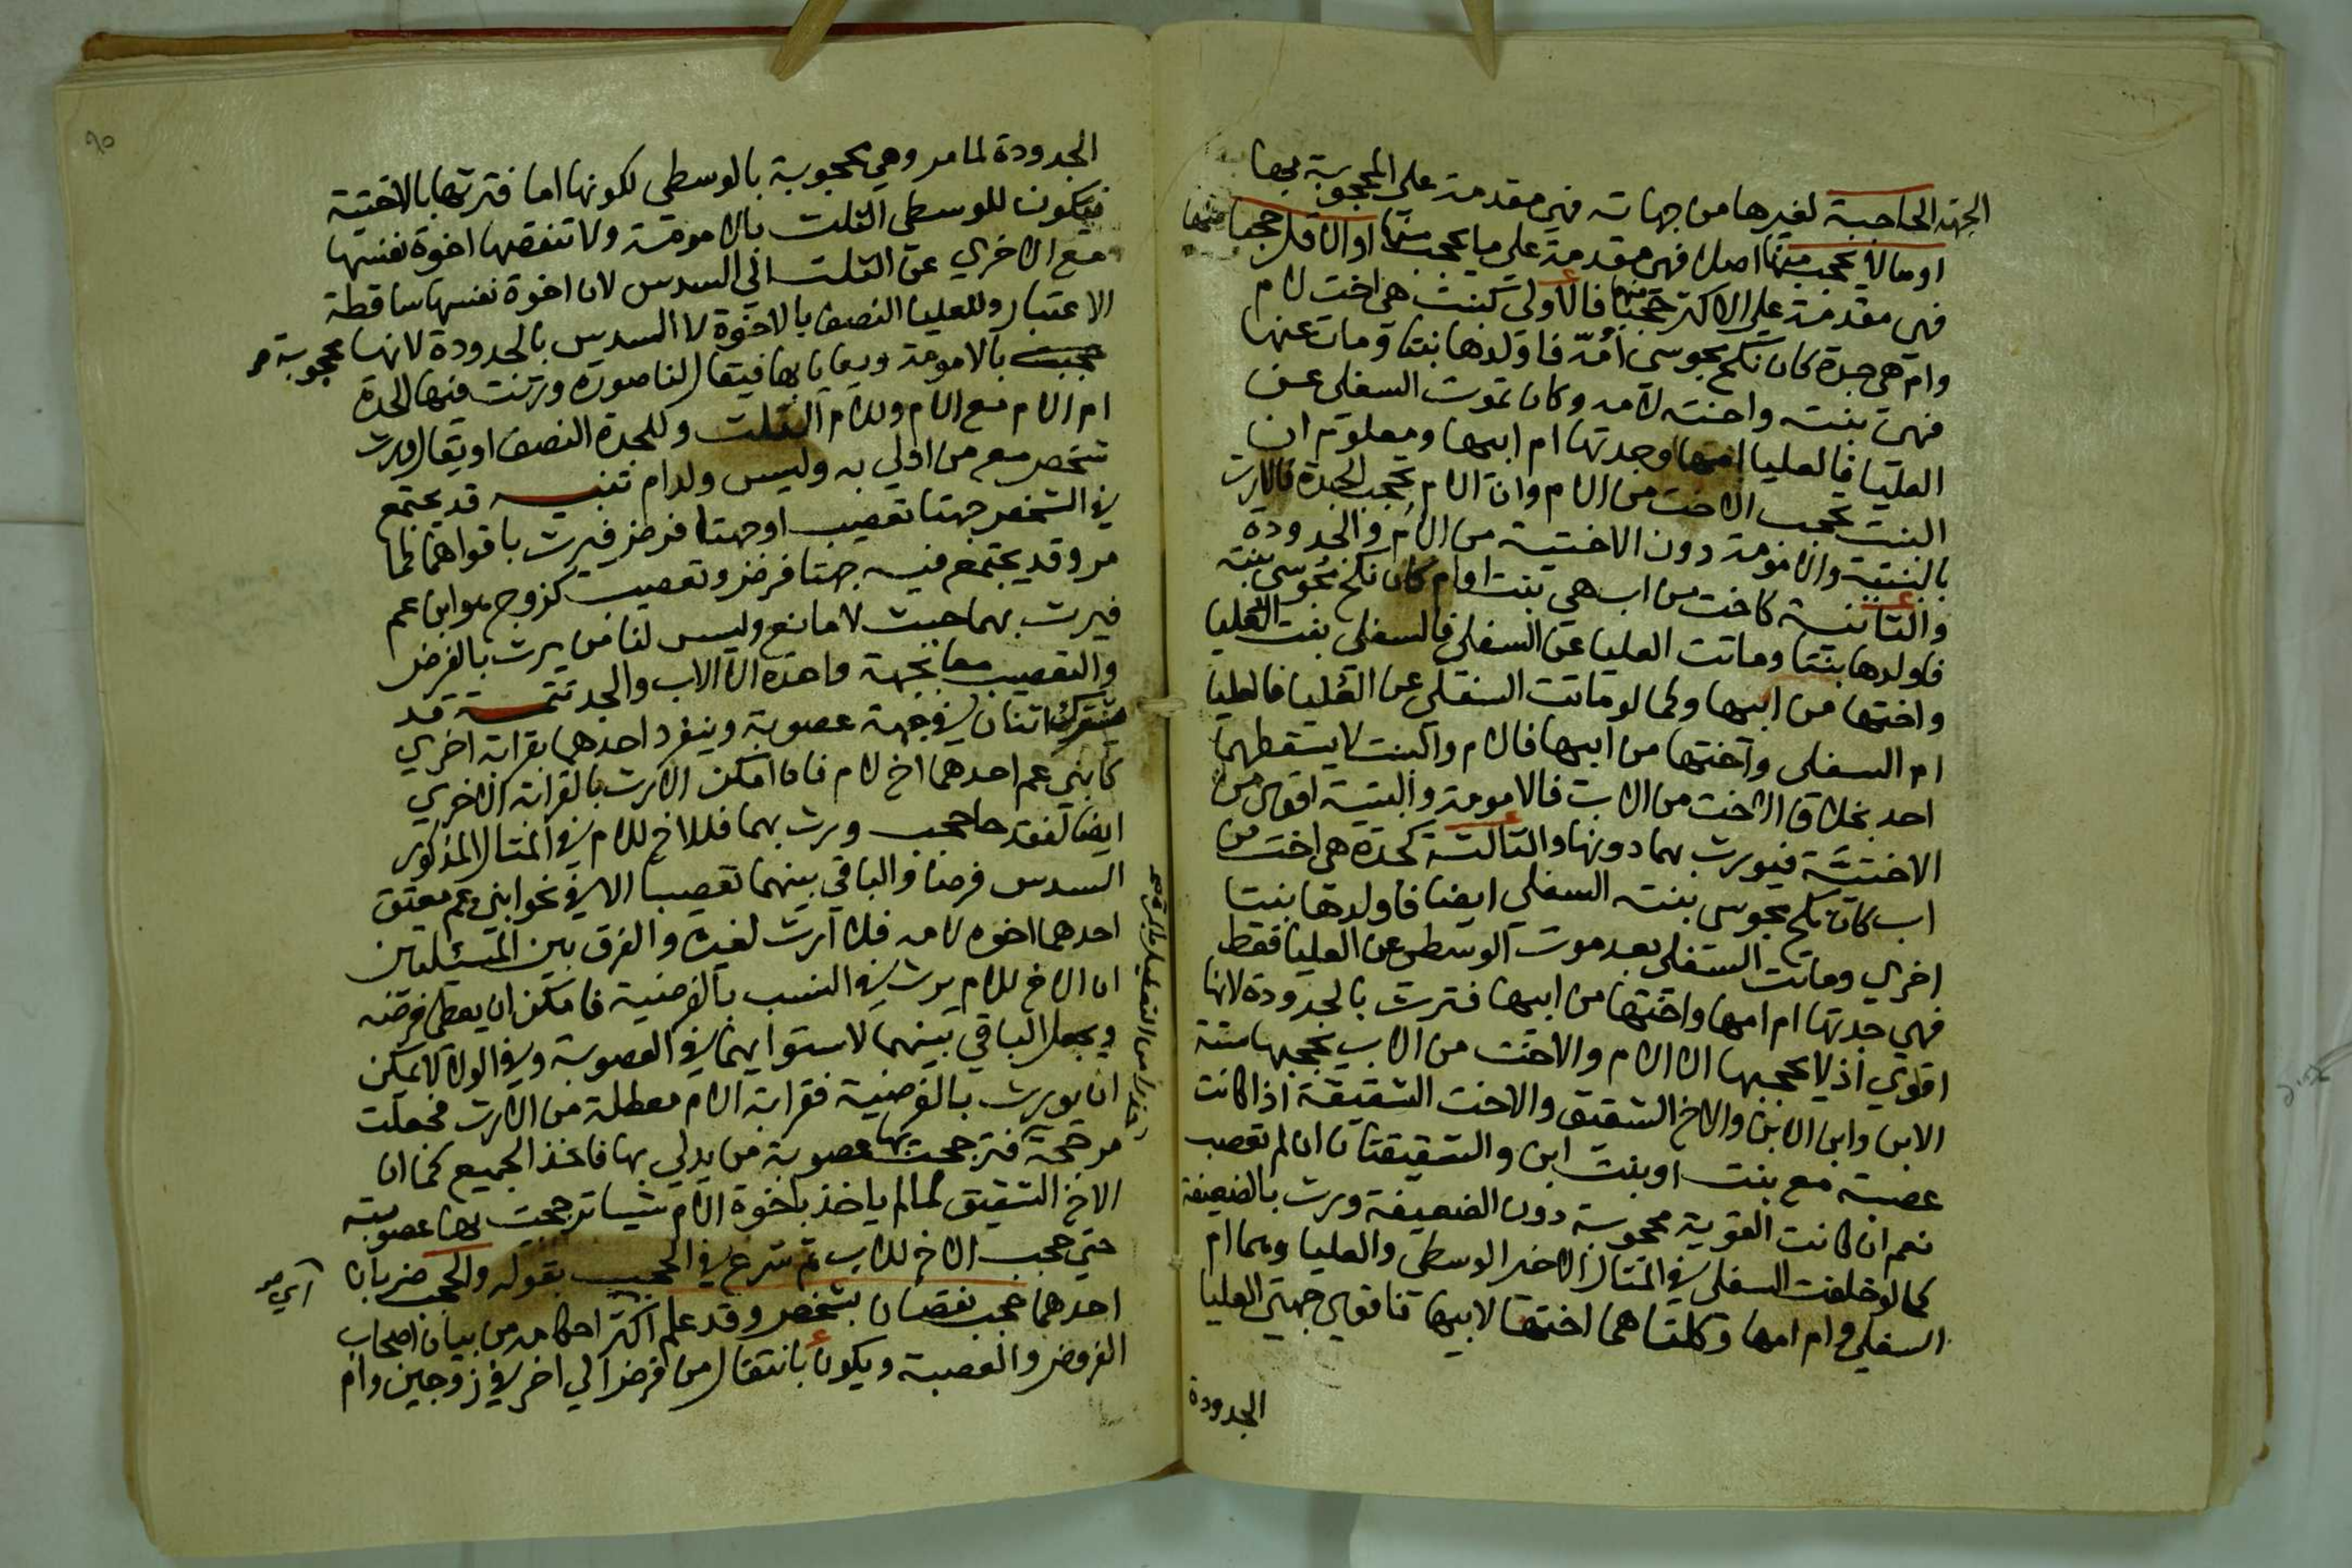 الجهة الحاجبة لغيرها من جهاته فهي مقدمة على المحجوبة بها
او مالا يحجب منها اصلا فهي مقدمة على ما يحجب منها او الاقل حجبا منها
فهي مقدمة على الاكثر حجبا منها فالاولى كبنت هي اخت لام
وام هي جدة كان نكح مجوسي امه فاولدها بنتا ومات عنها
فهي بنته واخته لامه وكان تموت السفلى عن
العليا فالعليا امها وجدتها ام ابيها ومعلوم ان
البنت تحجب الاخت من الام وان الام تحجب الجدة فالارث
بالبنتية والامومة دون الاختية من الام والجدودة
والثانية كاخت من اب هي بنت او ام كان نكح مجوسي بنته
فاولدها بنتا وماتت العليا عن السفلى فالسفلى بنت العليا
واختها من ابيها وكما لو ماتت السفلى عن العليا فالعليا
ام السفلى واختها من ابيها فالام والبنت لا يسقطهما
احد بخلاف الاخت من الاب فالامومة والبنتية اقوى من
الاختية فيورث بهما دونها والثالثة كجدة هي اخت من
اب كان نكح مجوسي بنته السفلى ايضا فاولدها بنتا
اخرى وماتت السفلى بعد موت الوسطى عن العليا فقط
فهي جدتها ام امها واختها من ابيها فترث بالجدودة لانها
اقوى اذ لا يحجبها الا الام والاخت من الاب يحجبها ستة
الابن وابن الابن والاخ الشقيق والاخت الشقيقة اذا كانت
عصبة مع بنت او بنت ابن والشقيقتان ان لم تعصب
نعم ان كانت القوية محجوبة دون الضعيفة ورث بالضعيفة
كما لو خلفت السفلى في المثال الاخير الوسطى والعليا وهما ام
السفلى وام امها وكلتاهما اختها لابيها فاقوى جهتي العليا
الجدودة
الجدودة لما مر وهي محجوبة بالوسطى لكونها اما فترثها بالاختية
فيكون للوسطى الثلث بالامومة ولا تنقصها اخوة نفسها
مع الاخرى عن الثلث الى السدس لان اخوة نفسها ساقطة
الاعتبار وللعليا النصف بالاخوة لا السدس بالجدودة لانها محجوبة
بالامومة ويعايا بها فيقال لنا صورة ورثت فيها الجدة
ام الام مع الام وللام الثلث وللجدة النصف او يقال ورث
شخص مع من ادلى به وليس ولد ام تنبيه قد يجتمع
في الشخص جهتا تعصيب او جهتا فرض فيرث باقواهما كما
مر وقد يجتمع فيه جهتا فرض وتعصيب كزوج هو ابن عم
فيرث بهما حيث لا مانع وليس لنا من يرث بالفرض
والتعصيب معا بجهة واحدة الا الاب والجد تتمة قد
يشترك اثنان في جهة عصوبة وينفرد احدهما بقرابة اخرى
كابني عم احدهما اخ لام فان امكن الارث بالقرابة الاخرى
ايضا لفقد حاجب ورث بهما فللاخ للام في المثال المذكور
السدس فرضا والباقي بينهما تعصيبا الا في نحو ابني عم معتق
احدهما اخوه لامه فلا ارث لغيره والفرق بين المسئلتين
ان الاخ للام يرث في النسب بالفرضية فامكن ان يعطى فرضه
ويجعل الباقي بينهما لاستوايهما في العصوبة وفي الولا لا يمكن
ان يورث بالفرضية فقرابة الام معطلة من الارث فجعلت
مرجحة فترجحت بها عصوبة من يدلي بها فاخذ الجميع كما ان
الاخ الشقيق لما لم ياخذ باخوة الام شيا ترجحت بها عصوبته
حتى حجب الاخ للاب ثم شرع في الحجب بقوله والحجب ضربان
احدهما حجب نقصان بشخص وقد علم اكثر احكامه من بيان اصحاب
الفروض والعصبة ويكون بانتقال من فرض الى اخر في زوجين وام
٩٥